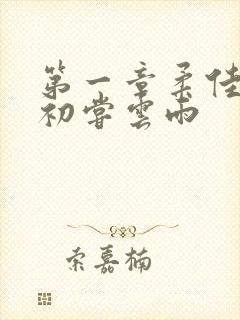 第一章柔佳
初尝雲雨
索嘉楠